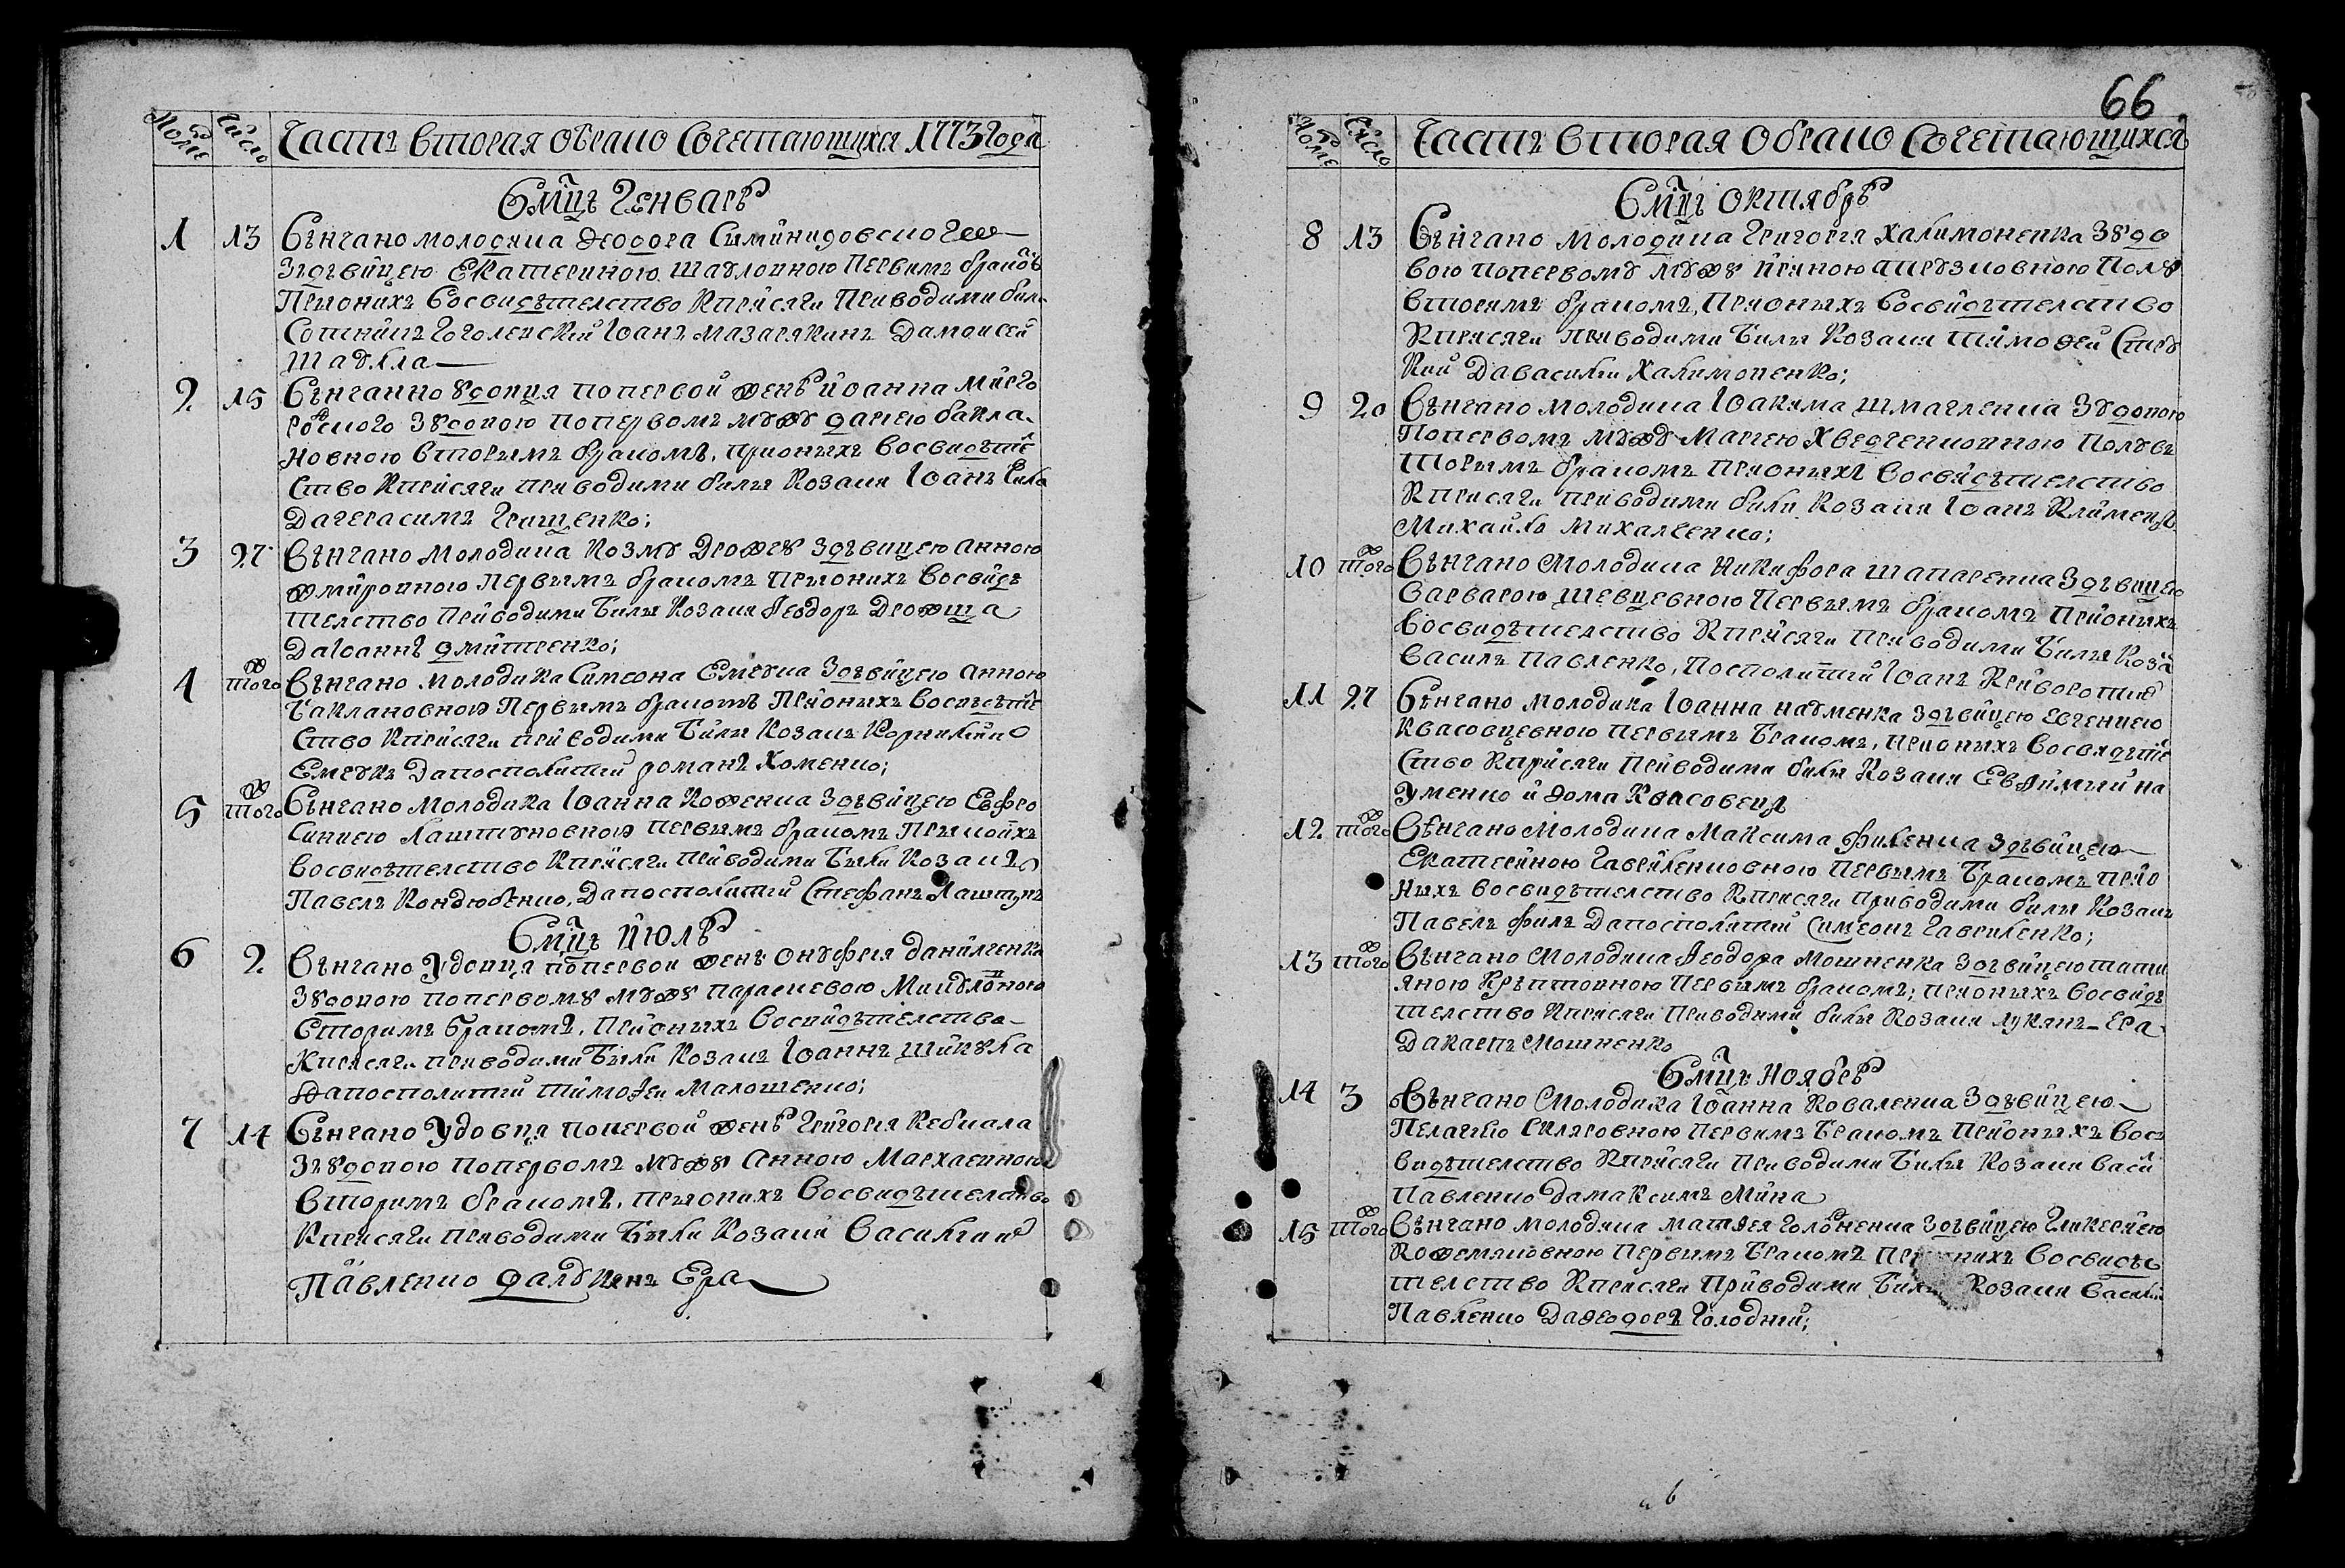 Номеръ Число Часть вторая обрако Сочетающихся 1773 Года
Вмцъ Генварѣ
1 13 Вѣнчано молодика Ѳеодора
Здѣвицею Екатериною первимъ бракомъ
При онихъ восвидѣтелство кприсяги приводими били
Сотникъ Гоголевский Іоанъ Дамоисей
Шаꙋла
2 15 Вѣнчанно ꙋдовця попервой женѣ Иоанна
Зꙋдовою попервомъ мꙋжꙋ Дариею бакла
новною вторымъ бракомъ, приныхъ восвидѣте
ство кприсяги приводими были козаки Іоанъ
Дагерасимъ Грищенко;
3 27 Вѣнчано молодика Козмꙋ Здѣвицею Анною
первымъ бракомъ прионихъ восвидѣ
телство приводими были козаки Ѳеодоръ
Даіоаннъ Дмитренко;
4 того ж Вѣнчано молодика Симеона Емеꙋка Здѣвицею Анною
баклановною первымъ бракомъ прионыхъ восвѣдѣте
ство кприсяги приводими были козакъ Корнилий
Емеꙋкъ Дапосполитий романъ Хоменко;
5 того ж Вѣнчано молодика Іоанна Коженка Здѣвицею Евфро
синиею Лаштꙋновною первымъ бракомъ прионихъ
восвидѣтелство кприсяги приводими были козакъ
Павелъ Кондюбенко, Дапосполитий Стефанъ Лаштунъ
Вмцъ Июлѣ
6 2 Вѣнчано Удовця попервой женѣ Онꙋфрия Данилченка
Зꙋдовою попервомꙋ мꙋжꙋ Параскевою
вторимъ бракомъ, прионыхъ восвидѣтелство
кприсяги приводими были козакъ Іоаннъ Шикꙋла
Дапосполитий Тимоѳей Малошенко;
7 14 Вѣнчано Удовця попервой женѣ Григория Кебкала
Зъꙋдовою попервомъ мꙋжꙋ Анною
вторимъ бракомъ, прионихъ восвидѣтелство
кприсяги приводими были козаки Василий
Павленко Далꙋкянъ Ера
66
Номеръ Число Часть вторая обрако Сочетающихся
Вмцъ Октябрѣ
8 13 Вѣнчано молодика Григория Халимоненка Зꙋдо
вою попервомꙋ мꙋжꙋ
вторимъ бракомъ, прионыхъ восвидѣтелство
кприсяги приводими были козаки Тимоѳей
Давасилий Халимоненко;
9 20 Вѣнчано молодика Іоакима Шмагленка Зꙋдовою
попервомъ мꙋжꙋ Мариею
вторымъ бракомъ прионыхъ восвидѣтелство
кприсяги приводими були козаки Іоанъ
Михайло Михалченко;
10 того ж Вѣнчано молодика Никифора Шапаренка Здѣвицею
Варварою Шевцевною первымъ бракомъ прионыхъ
восвидѣтелство кприсяги приводими были коза
Василъ Павленко, Посполитий Іоанъ
11 27 Вѣнчано молодика Іоанна Наꙋменка Здѣвицею Евгениею
Квасовцевною первымъ бракомъ, прионихъ восвидѣте
ство кприсяги приводими були козаки Евѳимий На
уменко и Ѳома Квасовецъ
12 того ж Вѣнчано молодика Максима Филенка Здѣвицею
Екатериною Гаврилековною первымъ бракомъ прио
ныхъ восвидѣтелство кприсяги приводими були козакъ
Павелъ Филь Дапосполитий Симеонъ Гавриленко;
13 того ж Вѣнчано молодика Ѳеодора Мошненка Здѣвицею тати
яною первымъ бракомъ; прионыхъ восвидѣ
телство кприсяги приводими були козаки Лукянъ Ера
Дакарпъ Мошненко
Вмцъ Ноябрѣ
14 3 Вѣнчано молодика Іоанна Коваленка Здѣвицею
Пелагиею Скляровною первимъ бракомъ прионыхъ вос
видѣтелство кприсяги приводими були козаки Васи
Павленко Дамаксимъ Мина
15 того ж Вѣнчано молодика Матѳея Здѣвицею Гликериею
Кожемяковною первымъ бракомъ восвидѣ
телство кприсяги приводими козаки Василий
Павленко Даѳеодоръ Голодний;